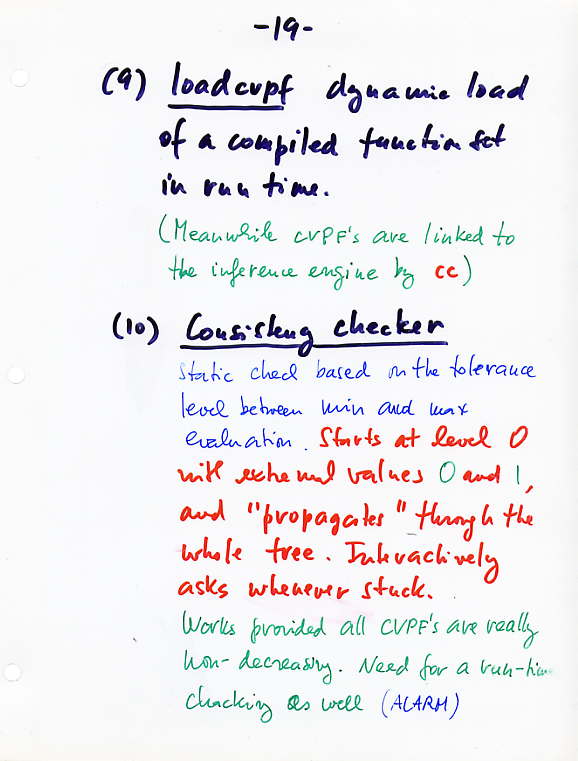 -19-
(9) loadcvpf dynamic load
of a compiled function set
in run time.
(Meanwhile CVPF's are linked to
the inference engine by cc)
(10) Consistency checker
Static check based on the tolerance
level between min and max
evaluation. Starts at level 0
with extremal values 0 and 1,
and "propagates" through the
whole tree. Interactively
asks whenever stuck.
Works provided all CVPF's are really
non-decreasing. Need for a run-time
checking as well (ALARM)